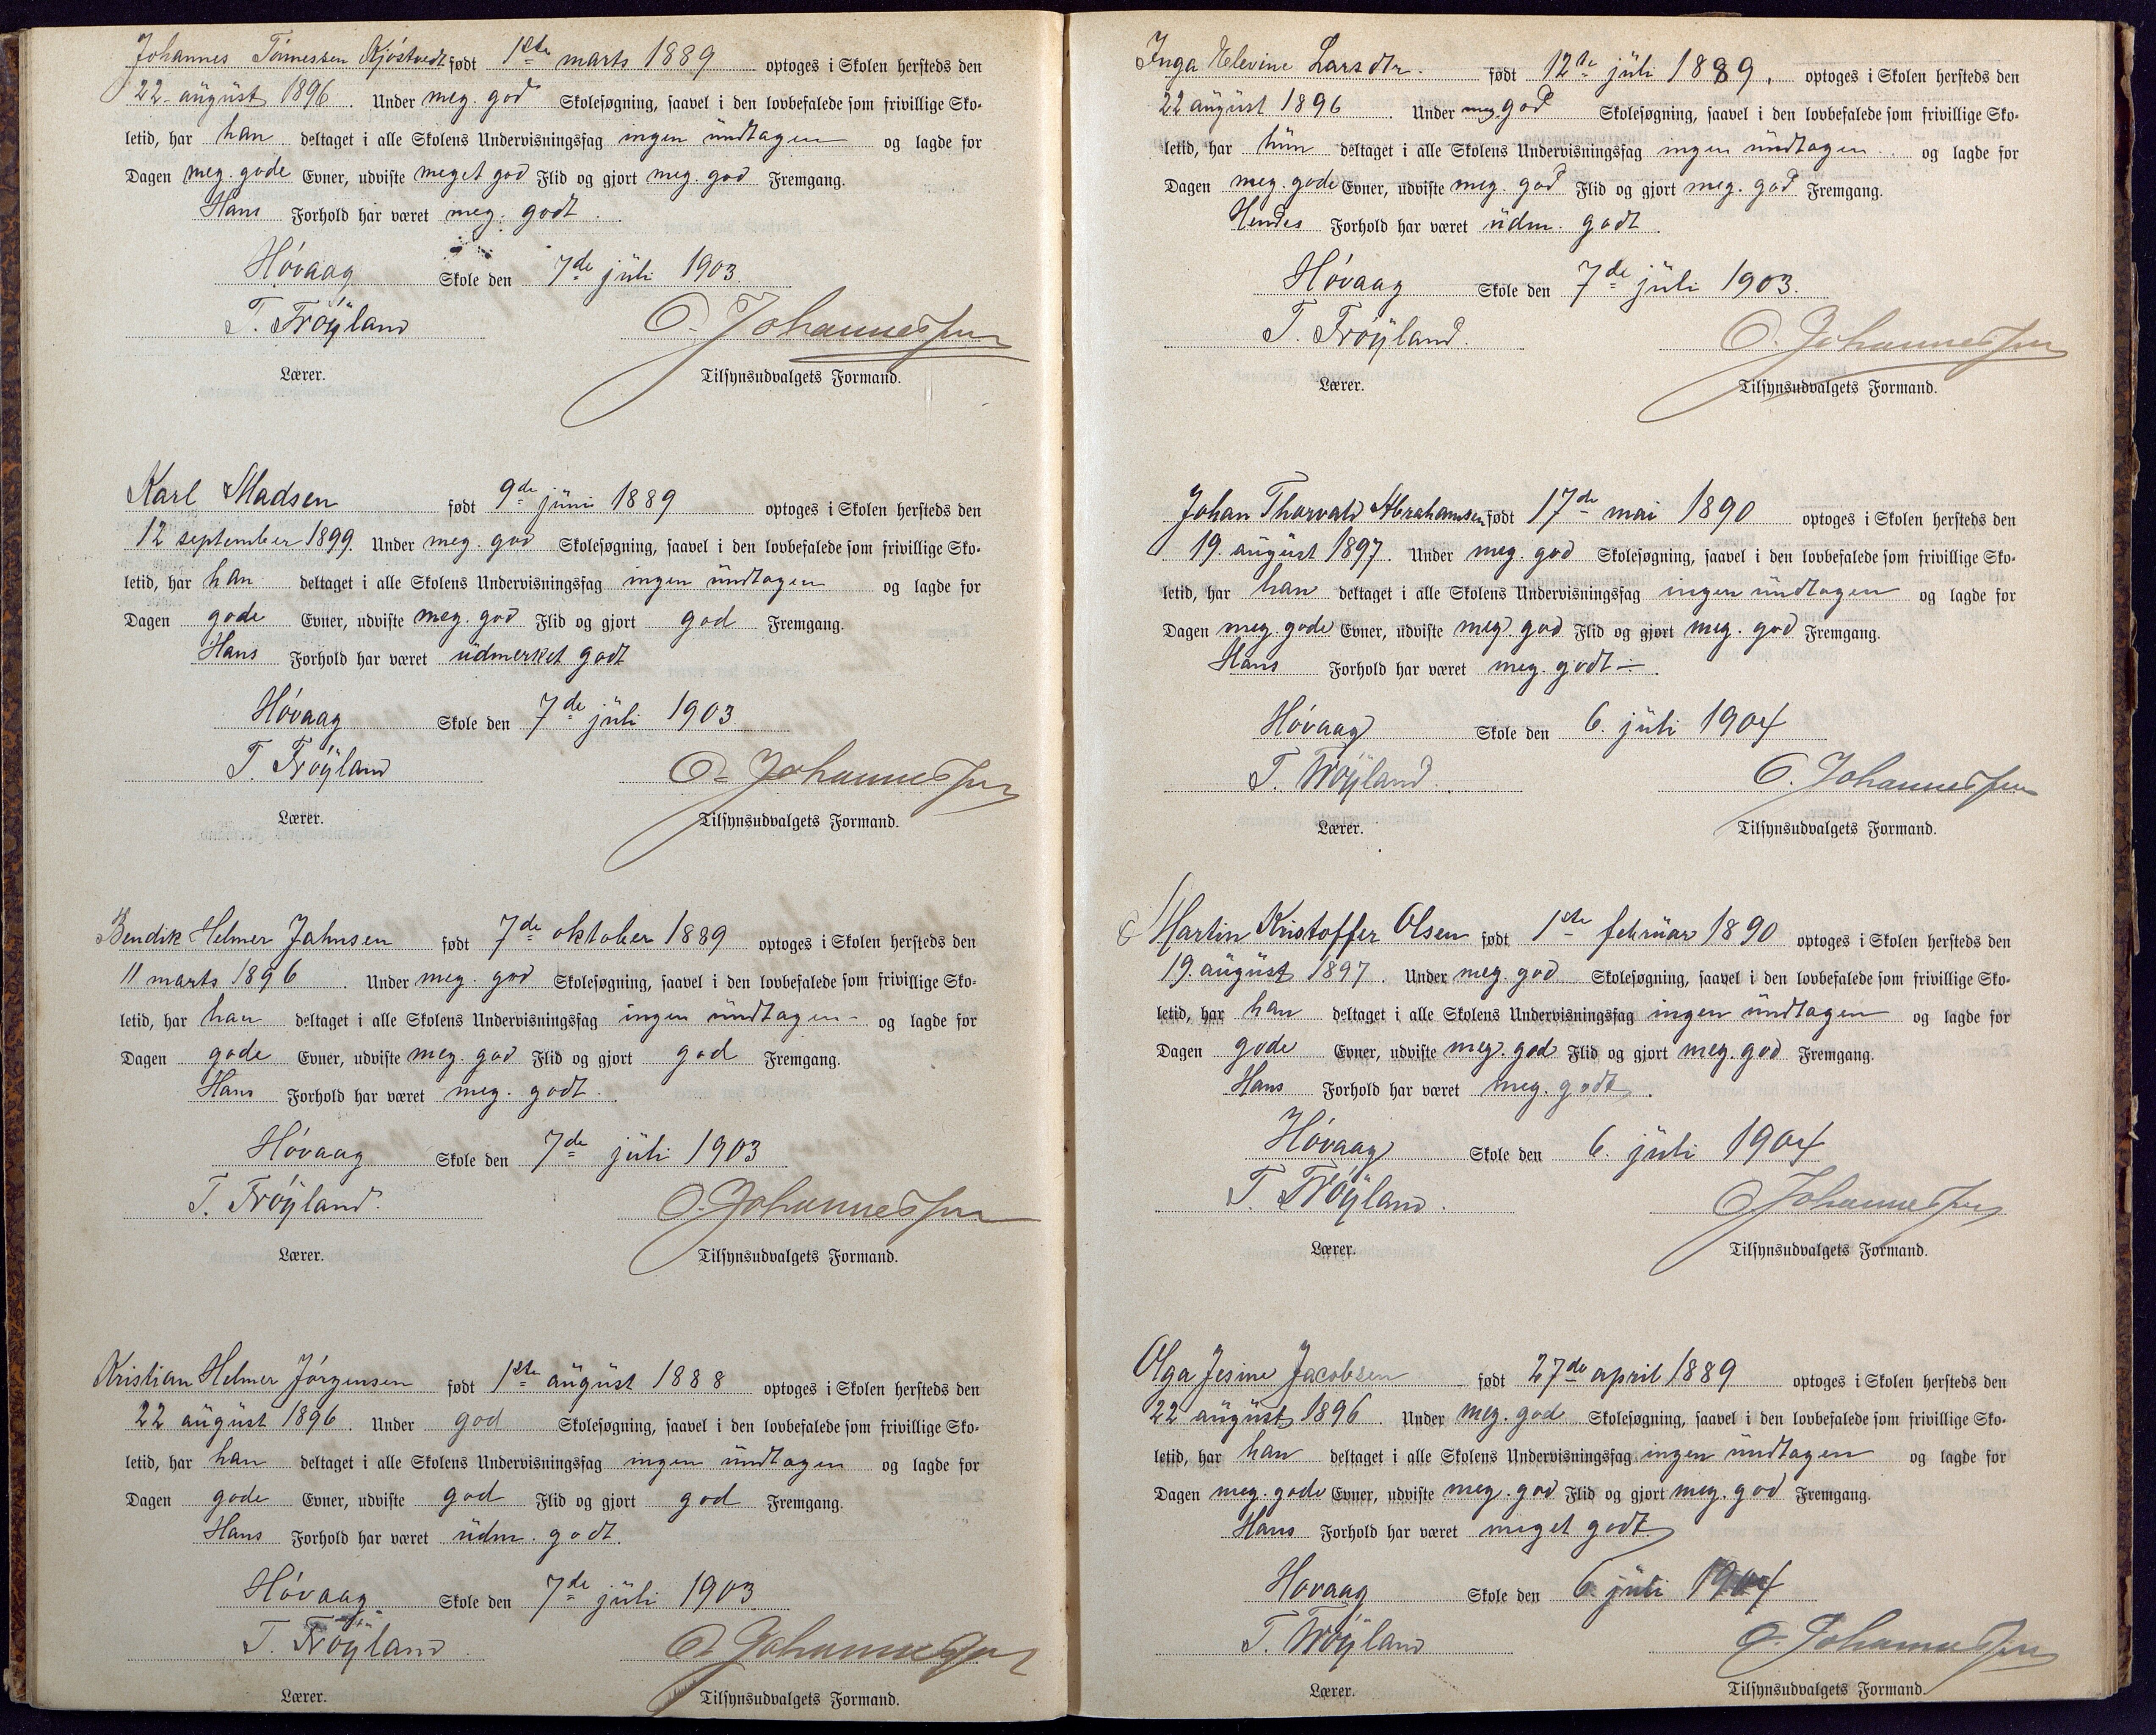 Johannes Tönnessen Kjöstvedt født 1ste marts 1889 optoges i Skolen hersteds den
22 august 1896. Under meg. god Skolesøgning, saavel i den lovbefalede som frivillige Sko-
letid, har han deltaget i alle Skolens Undervisningsfag ingen undtagen og lagde for
Dagen meg. gode Evner, udviste meget god Flid og gjort meg. god Fremgang.
Hans Forhold har været meg. godt.
Hóvaag Skole den 7de juli 1903.
T. Tróyland O. Johannessen
Lærer. Tilsynsudvalgets Formand.
Karl Madsen født 9de juni 1889 optoges i Skolen hersteds den
12 september 1899. Under meg. god Skolesøgning, saavel i den lovbefalede som frivillige Sko-
letid, har han deltaget i alle Skolens Undervisningsfag ingen undtagen og lagde for
Dagen gode Evner, udviste meg. god Flid og gjort god Fremgang.
Hans Forhold har været udmerket godt
Hóvaag Skole den 7de juli 1903.
T. Tróyland O. Johannessen
Lærer. Tilsynsudvalgets Formand.
Bendik Helmer Jahnsen født 7de oktober 1889 optoges i Skolen hersteds den
11 marts 1896. Under meg. god Skolesøgning, saavel i den lovbefalede som frivillige Sko-
letid, har han deltaget i alle Skolens Undervisningsfag ingen undtagen - og lagde for
Dagen gode Evner, udviste meg. god Flid og gjort god Fremgang.
Hans Forhold har været meg. godt.
Hóvaag Skole den 7de juli 1903
T. Tróyland. O. Johannessen
Lærer. Tilsynsudvalgets Formand.
Kristian Helmer Jórgensen født 1ste august 1888 optoges i Skolen hersteds den
22 august 1896. Under god Skolesøgning, saavel i den lovbefalede som frivillige Sko-
letid, har han deltaget i alle Skolens Undervisningsfag ingen undtagen og lagde for
Dagen gode Evner, udviste god Flid og gjort god Fremgang.
Hans Forhold har været udm. godt.
Hóvaag Skole den 7de juli 1903
T. Tróyland. O. Johannessen
Lærer. Tilsynsudvalgets Formand.
Inga Elevine Larsdtr. født 12te juli 1889. optoges i Skolen hersteds den
22 august 1896. Under meg. god Skolesøgning, saavel i den lovbefalede som frivillige Sko-
letid, har hun deltaget i alle Skolens Undervisningsfag ingen undtagen. og lagde for
Dagen meg. gode Evner, udviste meg. god Flid og gjort meg. god Fremgang.
Hendes Forhold har været udm. godt.
Hóvaag Skole den 7de juli 1903.
T. Tróyland. O. Johannessen
Lærer. Tilsynsudvalgets Formand.
Johan Thorvald Abrahamsen født 17de mai 1890 optoges i Skolen hersteds den
19. august 1897. Under meg. god Skolesøgning, saavel i den lovbefalede som frivillige Sko-
letid, har han deltaget i alle Skolens Undervisningsfag ingen undtagen og lagde for
Dagen meg. gode Evner, udviste meg. god Flid og gjort meg. god Fremgang.
Hans Forhold har været meg. godt —.
Hóvaag Skole den 6. juli 1904
T. Tróyland. O. Johannessen
Lærer. Tilsynsudvalgets Formand.
Martin Kristoffer Olsen født 1ste februar 1890 optoges i Skolen hersteds den
19. august 1897. Under meg. god Skolesøgning, saavel i den lovbefalede som frivillige Sko-
letid, har han deltaget i alle Skolens Undervisningsfag ingen undtagen og lagde for
Dagen gode Evner, udviste meg. god Flid og gjort meg. god Fremgang.
Hans Forhold har været meg. godt.
Hóvaag Skole den 6. juli 1904
T. Tróyland. O. Johannessen
Lærer. Tilsynsudvalgets Formand.
Olga Jesine Jacobsen født 27de april 1889 optoges i Skolen hersteds den
22 august 1896. Under meg. god Skolesøgning, saavel i den lovbefalede som frivillige Sko-
letid, har han deltaget i alle Skolens Undervisningsfag ingen undtagen og lagde for
Dagen meg. gode Evner, udviste meg. god Flid og gjort meg. god Fremgang.
Hans Forhold har været meget godt.
Hóvaag Skole den 6 juli 1904
T. Tróyland O. Johannessen
Lærer. Tilsynsudvalgets Formand.